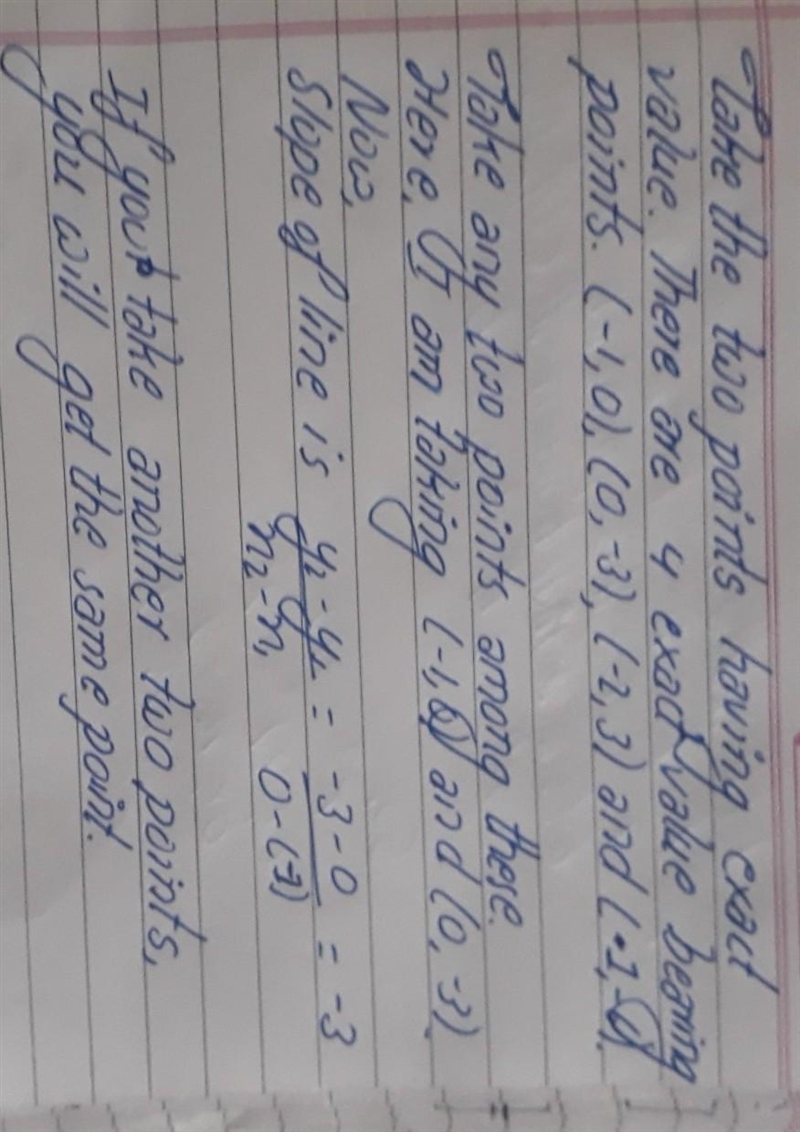 Take the two points having exact
value. There are 4 exact value bearing
points. (-1,0), (0,-3), (-2,3) and
Take any two points among these.
Here, I am taking (-1,0) and (0,-3).
Now,
Slope of line is y₂-y₁/x₂-x₁ = -3-0/0-(-1) = -3
If you take another two points,
you will get the same point.